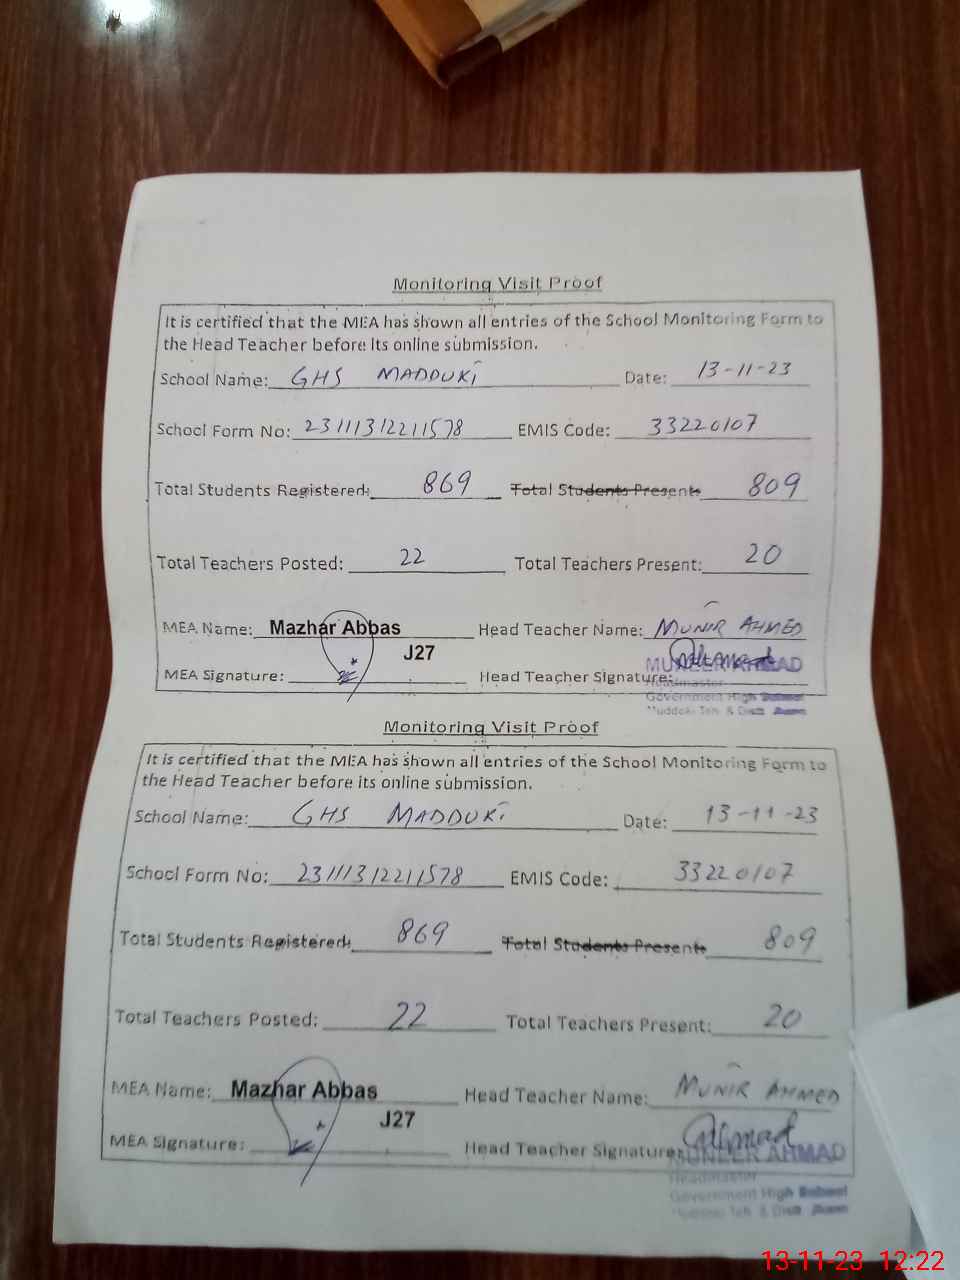 Monitoring Visit Proof
It is certified that the MEA has shown all entries of the School Monitoring Form to
the Head Teacher before its online submission.
School Name: GHS MADDUKI Date: 13-11-23
School Form No: 23111312211578 EMIS Code: 33220107
Total Students Registered: 869 Total Students Present: 809
Total Teachers Posted: 22 Total Teachers Present: 20
MEA Name: Mazhar Abbas Head Teacher Name: MUNIR AHMED
J27
MEA Signature: Head Teacher Signature: Ahmad
MUNEER AHMAD
Headmaster
Government High School
Muddoki Teh. & Distt Jhang
Monitoring Visit Proof
It is certified that the MEA has shown all entries of the School Monitoring Form to
the Head Teacher before its online submission.
School Name: GHS MADDUKI Date: 13-11-23
School Form No: 23111312211578 EMIS Code: 33220107
Total Students Registered: 869 Total Students Present: 809
Total Teachers Posted: 22 Total Teachers Present: 20
MEA Name: Mazhar Abbas Head Teacher Name: MUNIR AHMED
J27
MEA Signature: Head Teacher Signature: Ahmad
MUNEER AHMAD
Headmaster
Government High School
Muddoki Teh. & Distt Jhang
13-11-23 12:22